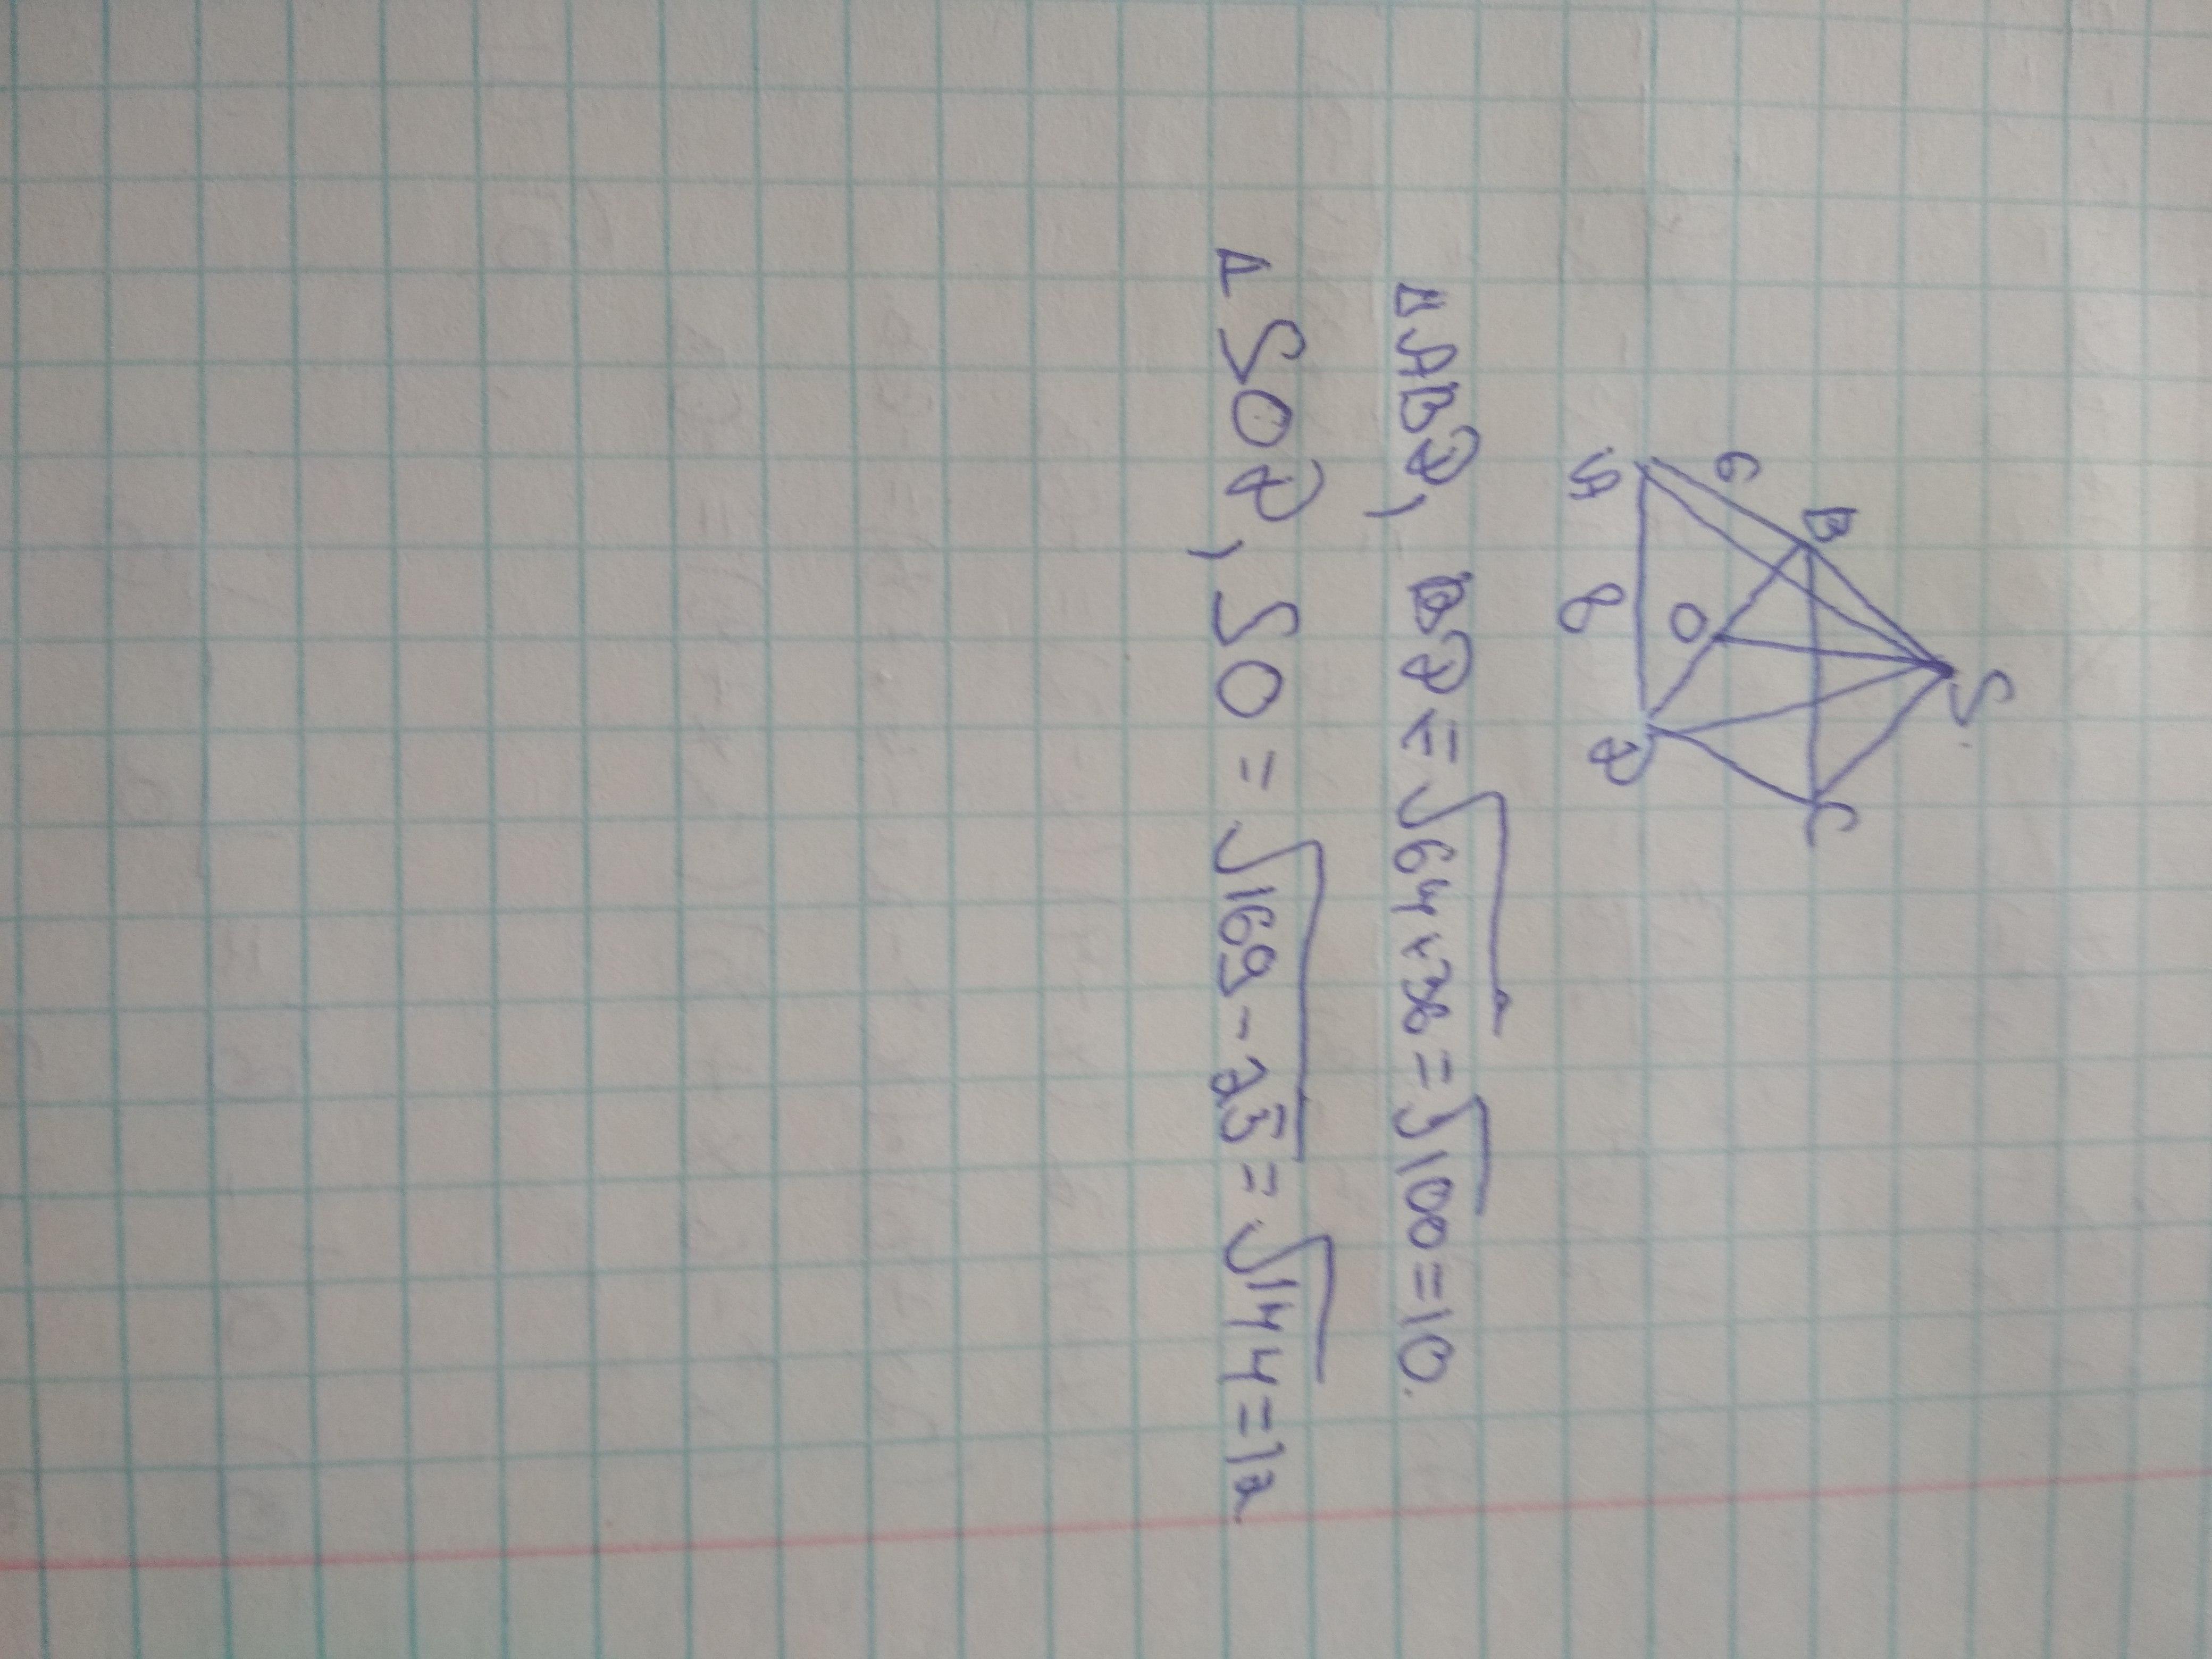 S.
B
C
6
O
A
8
D
Δ ABD, BD = √64+36 = √100 = 10.
Δ SOD, SO = √169-25 = √144 = 12